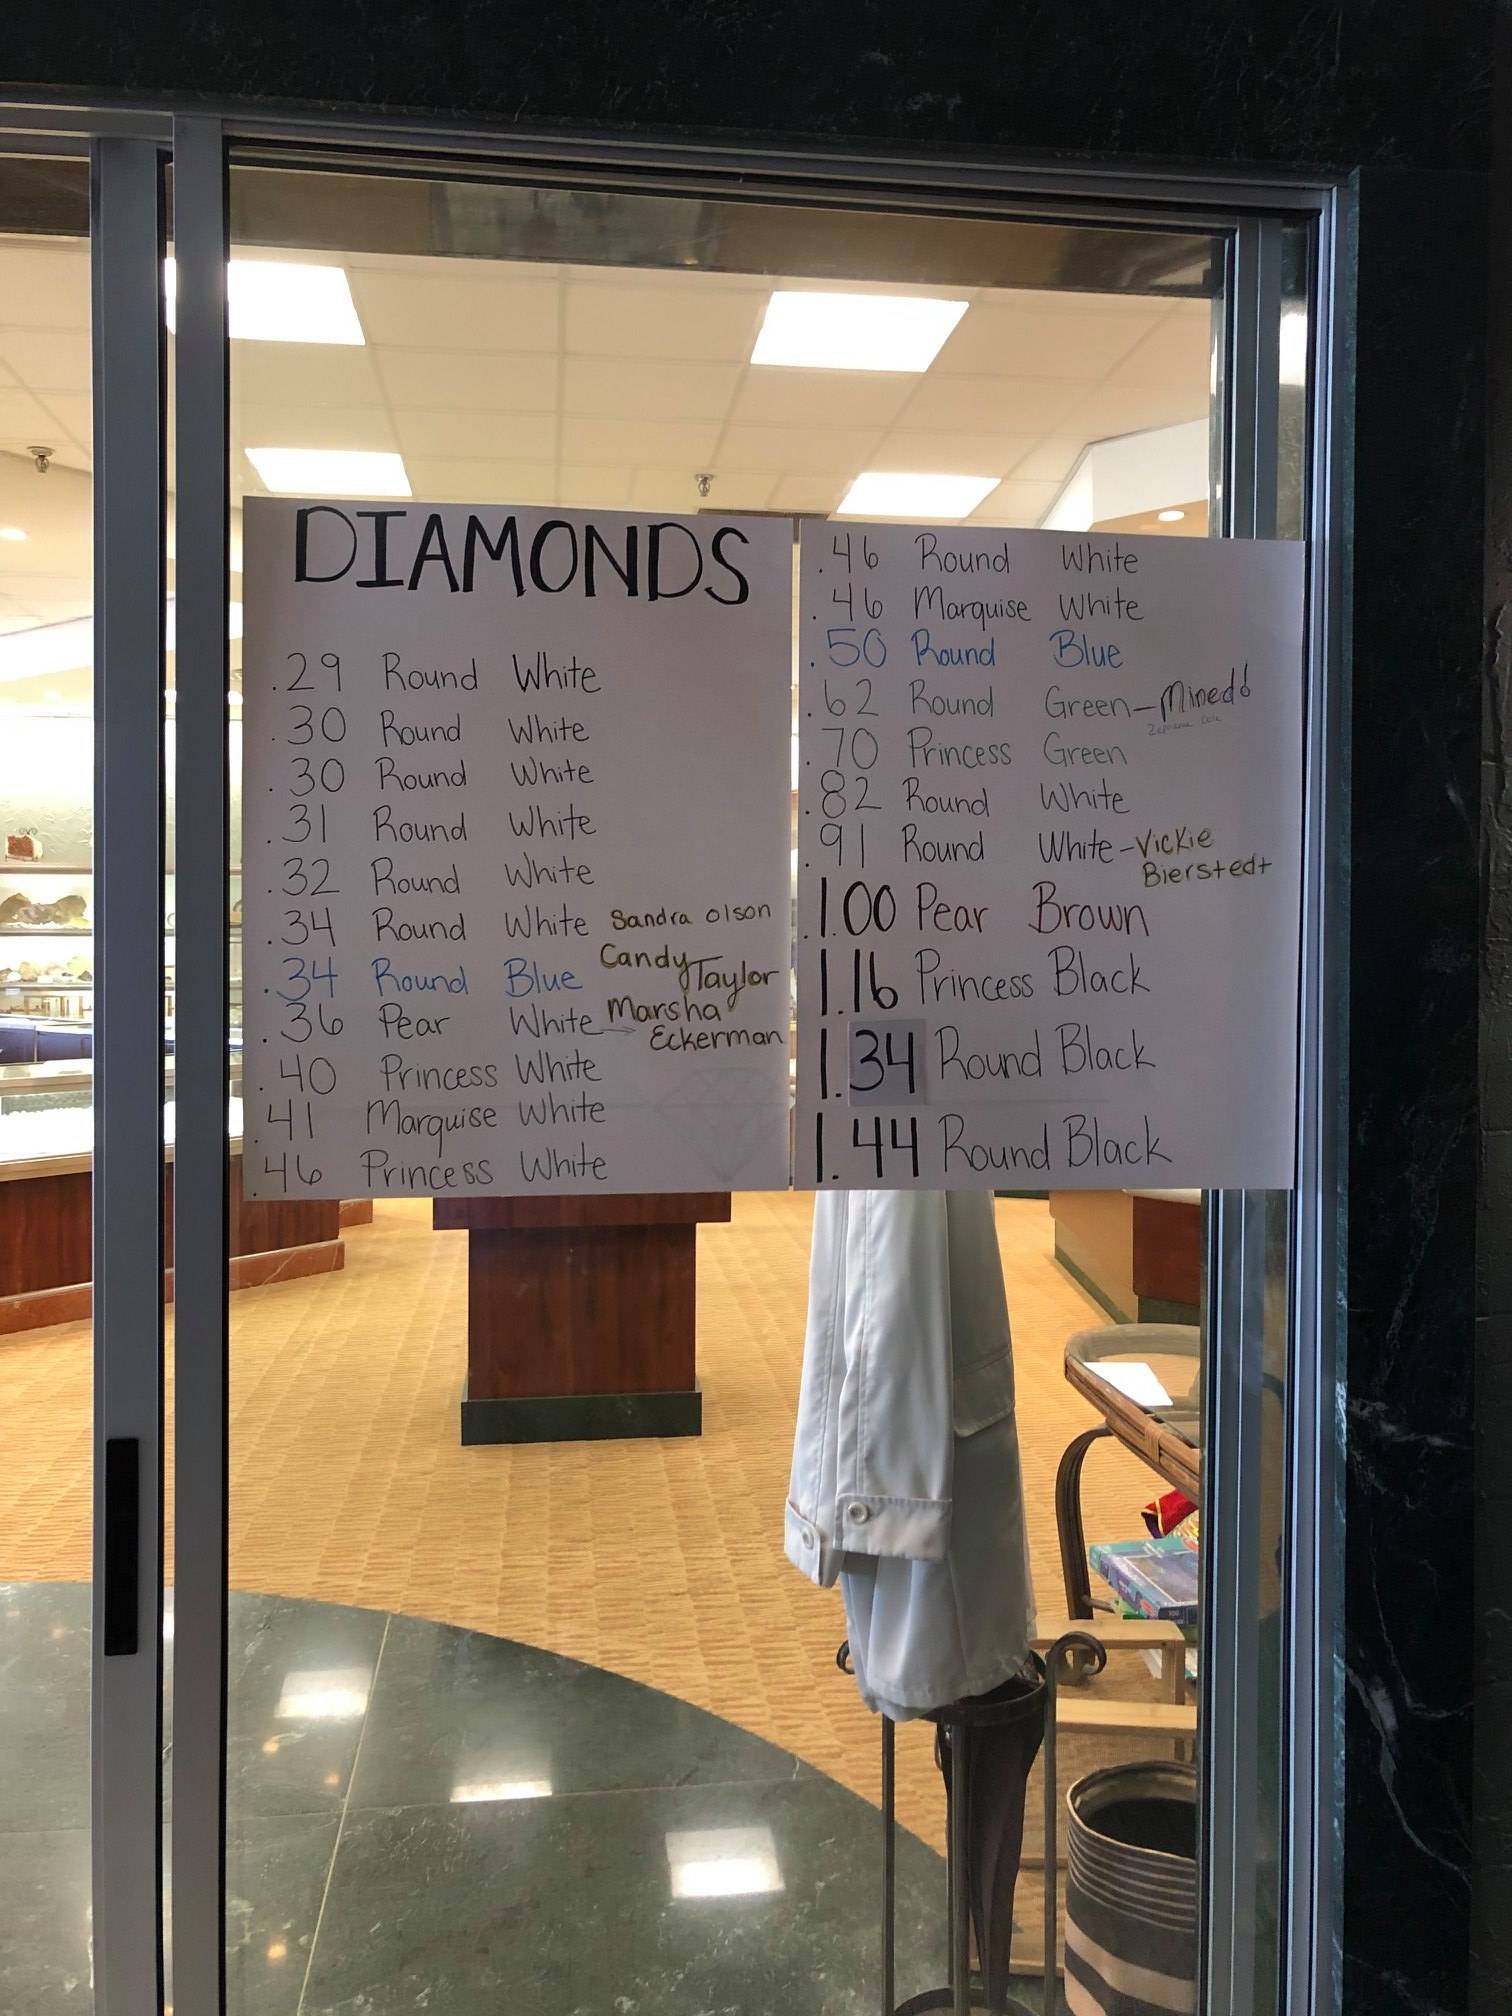 DIAMONDS
.29 Round White
.30 Round White
.30 Round White
.31 Round White
.32 Round White
.34 Round White Sandra Olson
.34 Round Blue Candy Taylor
.36 Pear White Marsha Eckerman
.40 Princess White
.41 Marquise White
.46 Princess White
.46 Round White
.46 Marquise White
.50 Round Blue
.62 Round Green-Mined!
.70 Princess Green
.82 Round White
.91 Round White-Vickie
Bierstedt
1.00 Pear Brown
1.16 Princess Black
1.34 Round Black
1.44 Round Black